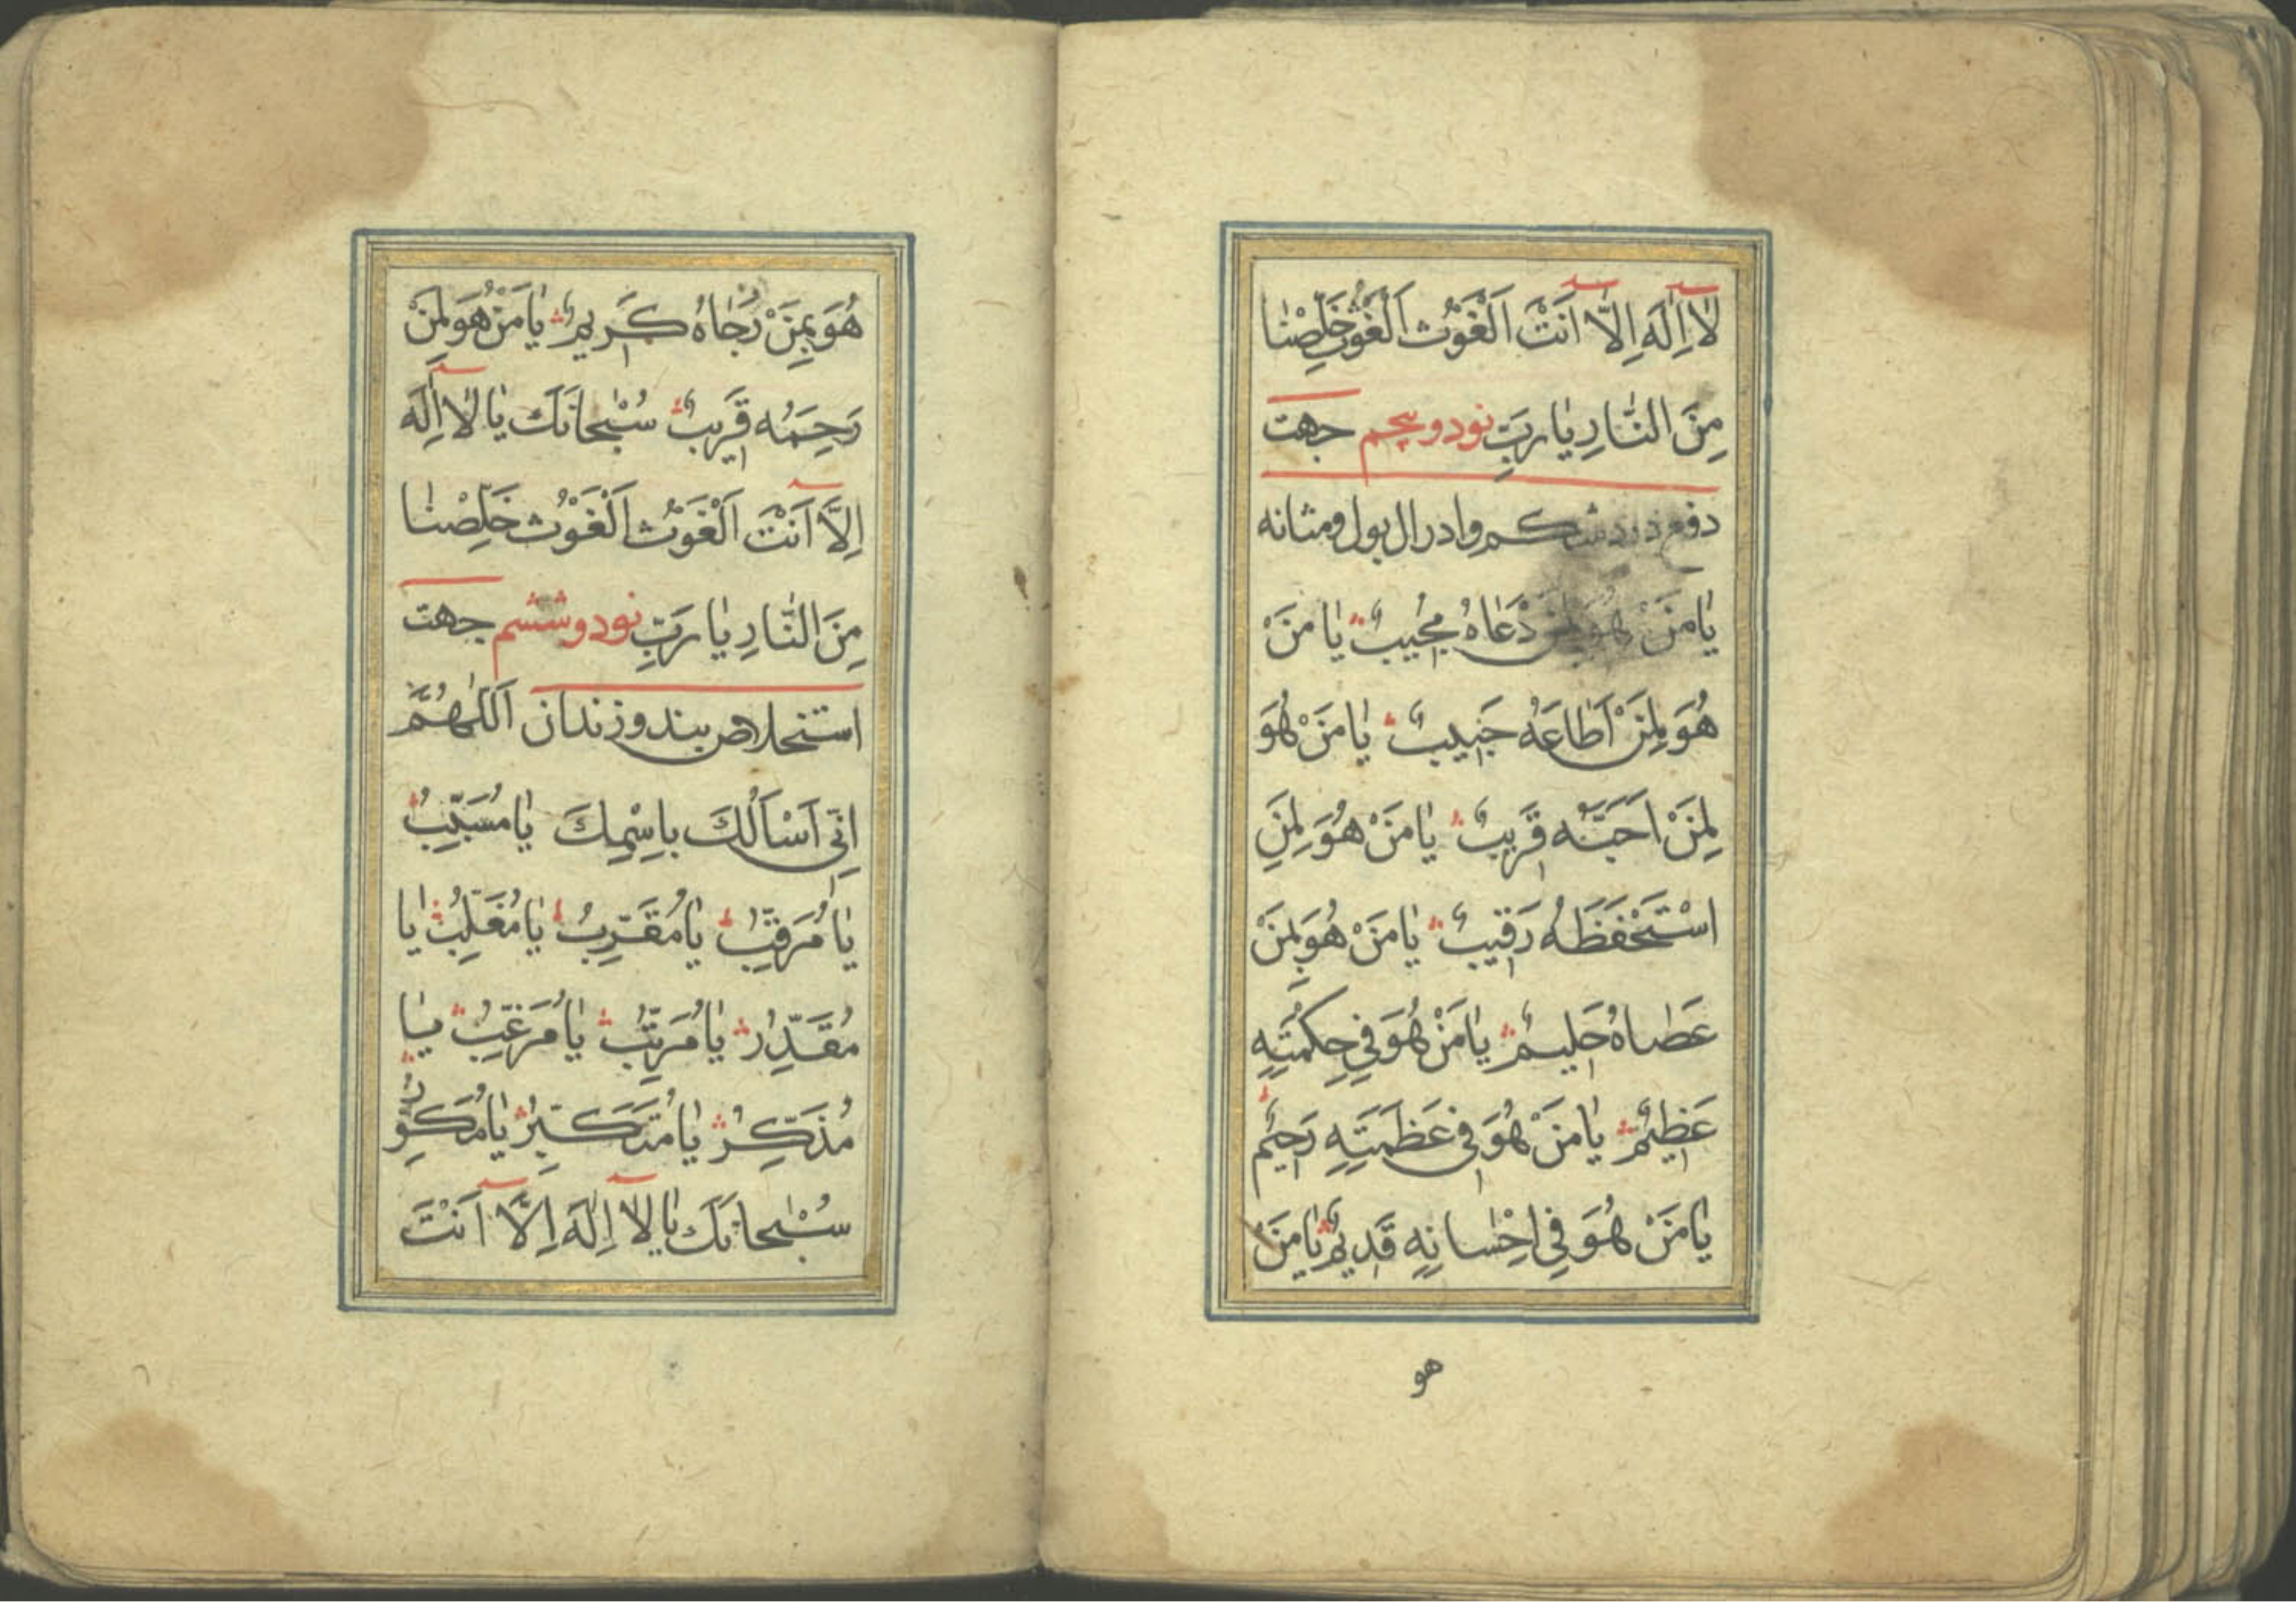 لَا اِلٰهَ اِلَّا اَنْتَ اَلْغَوْثَ اَلْغَوْثَ خَلِّصْنَا
مِنَ النَّارِ يَا رَبِّ نود و پنجم جهت
دفع درد شكم وادرال بول ومثانه
يَا مَنْ هُوَ لِمَنْ دَعَاهُ مُجِيبٌ يَا مَنْ
هُوَ لِمَنْ اَطَاعَهُ حَبِيبٌ يَا مَنْ هُوَ
لِمَنْ اَحَبَّهُ قَرِيبٌ يَا مَنْ هُوَ لِمَنِ
اسْتَحْفَظَهُ رَقِيبٌ يَا مَنْ هُوَ بِمَنْ
عَصَاهُ حَلِيمٌ يَا مَنْ هُوَ فِي حِكْمَتِهِ
عَظِيمٌ يَا مَنْ هُوَ فِي عَظَمَتِهِ رَحِيمٌ
يَا مَنْ هُوَ فِي اِحْسَانِهِ قَدِيمٌ يَا مَنْ
هو
هُوَ بِمَنْ رَجَاهُ كَرِيمٌ يَا مَنْ هُوَ لِمَنْ
رَحِمَهُ قَرِيبٌ سُبْحَانَكَ يَا لَا اِلٰهَ
اِلَّا اَنْتَ اَلْغَوْثَ اَلْغَوْثَ خَلِّصْنَا
مِنَ النَّارِ يَا رَبِّ نود و ششم جهت
استخلاص بند و زندان اَللّٰهُمَّ
اِنِّي اَسْأَلُكَ بِاسْمِكَ يَا مُسَبِّبُ
يَا مُرَقِّبُ يَا مُقَرِّبُ يَا مُغَلِّبُ يَا
مُقَدِّرُ يَا مُرَتِّبُ يَا مُرَغِّبُ يَا
مُذَكِّرُ يَا مُتَكَبِّرُ يَا مُكَوِّنُ
سُبْحَانَكَ يَا لَا اِلٰهَ اِلَّا اَنْتَ